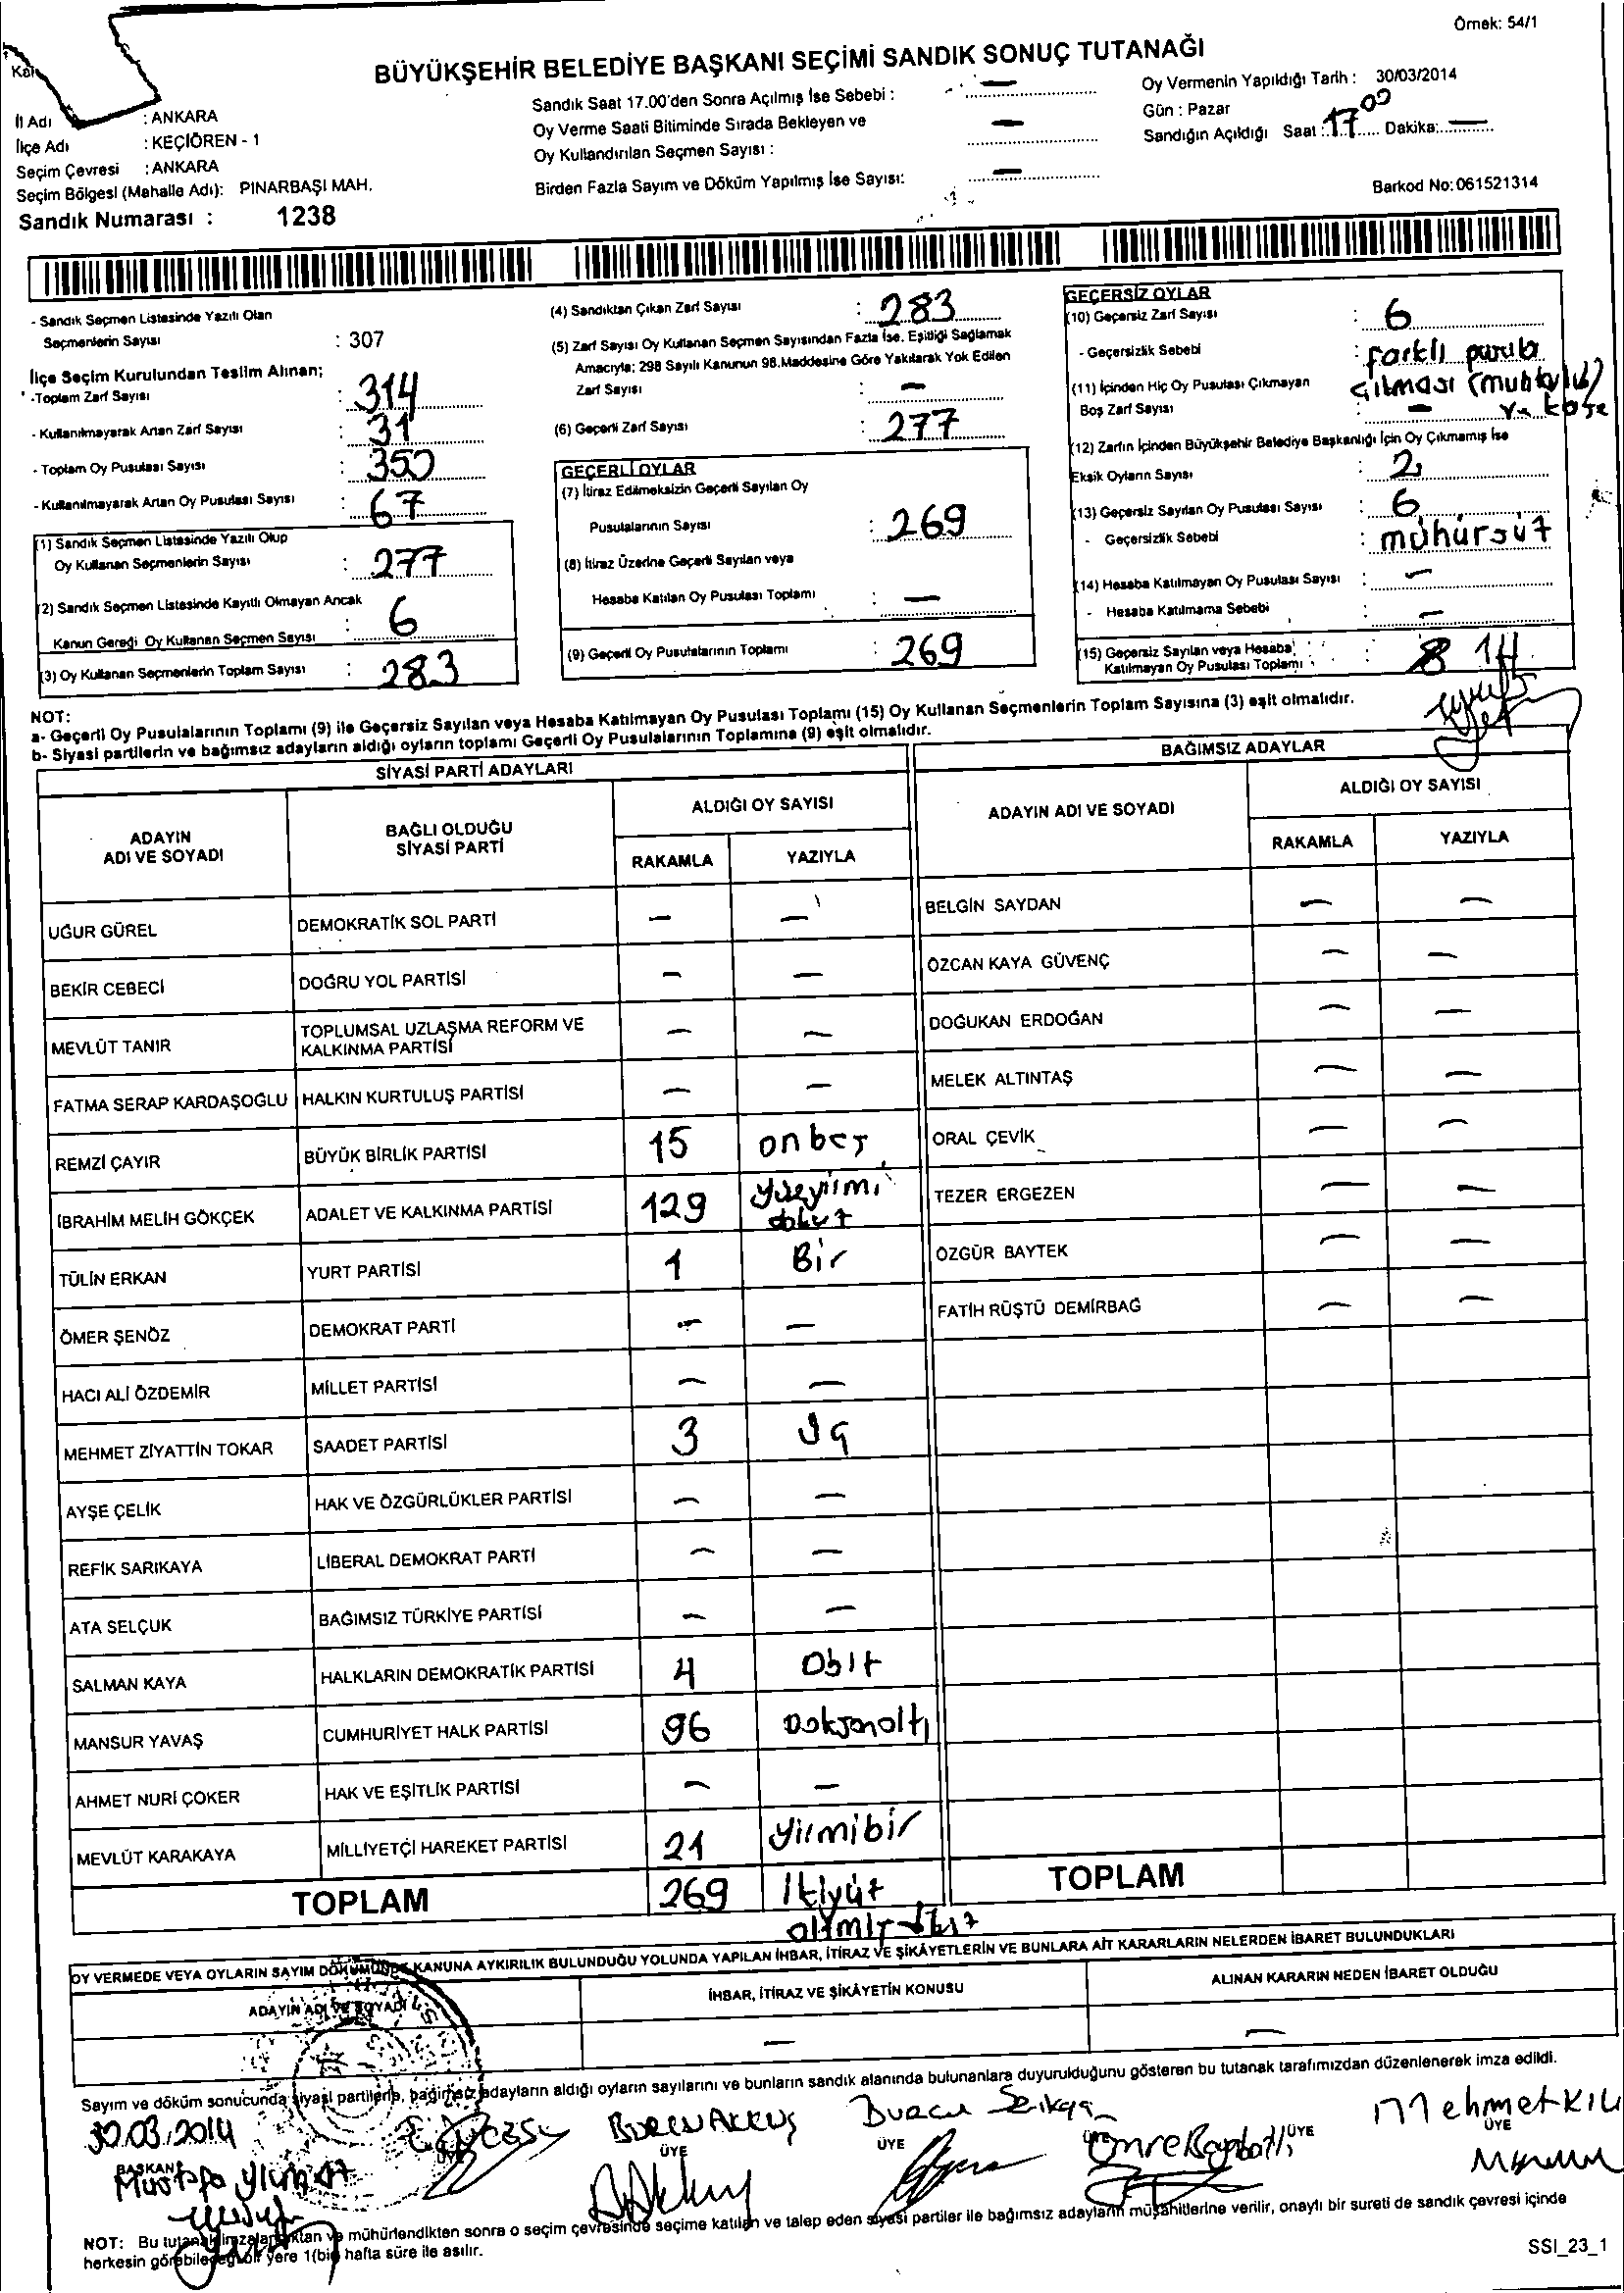 Örnek: 54/1
BÜYÜKŞEHİR BELEDİYE BAŞKANI SEÇİMİ SANDIK SONUÇ TUTANAĞI
İl Adı : ANKARA
İlçe Adı : KEÇİÖREN - 1
Seçim Çevresi : ANKARA
Seçim Bölgesi (Mahalle Adı): PINARBAŞI MAH.
Sandık Numarası : 1238
Sandık Saat 17.00'den Sonra Açılmış İse Sebebi : —
Oy Verme Saati Bitiminde Sırada Bekleyen ve
Oy Kullandırılan Seçmen Sayısı : —
Birden Fazla Sayım ve Döküm Yapılmış İse Sayısı: —
Oy Vermenin Yapıldığı Tarih : 30/03/2014
Gün : Pazar
Sandığın Açıldığı Saat : 17 00 Dakika: —
Barkod No: 061521314
- Sandık Seçmen Listesinde Yazılı Olan
Seçmenlerin Sayısı : 307
İlçe Seçim Kurulundan Teslim Alınan;
-Toplam Zarf Sayısı : 314
- Kullanılmayarak Artan Zarf Sayısı : 31
- Toplam Oy Pusulası Sayısı : 350
- Kullanılmayarak Artan Oy Pusulası Sayısı : 67
(1) Sandık Seçmen Listesinde Yazılı Olup
Oy Kullanan Seçmenlerin Sayısı : 277
(2) Sandık Seçmen Listesinde Kayıtlı Olmayan Ancak
Kanun Gereği Oy Kullanan Seçmen Sayısı : 6
(3) Oy Kullanan Seçmenlerin Toplam Sayısı : 283
(4) Sandıktan Çıkan Zarf Sayısı : 283
(5) Zarf Sayısı Oy Kullanan Seçmen Sayısından Fazla İse, Eşitliği Sağlamak
Amacıyla; 298 Sayılı Kanunun 98.Maddesine Göre Yakılarak Yok Edilen
Zarf Sayısı : —
(6) Geçerli Zarf Sayısı : 277
GEÇERLİ OYLAR
(7) İtiraz Edilmeksizin Geçerli Sayılan Oy
Pusulalarının Sayısı : 269
(8) İtiraz Üzerine Geçerli Sayılan veya
Hesaba Katılan Oy Pusulası Toplamı : —
(9) Geçerli Oy Pusulalarının Toplamı : 269
GEÇERSİZ OYLAR
(10) Geçersiz Zarf Sayısı : 6
- Geçersizlik Sebebi : farklı pusula
çıkması
(11) İçinden Hiç Oy Pusulası Çıkmayan
Boş Zarf Sayısı : —
(12) Zarfın İçinden Büyükşehir Belediye Başkanlığı İçin Oy Çıkmamış İse
Eksik Oyların Sayısı : 2
(13) Geçersiz Sayılan Oy Pusulası Sayısı : 6
- Geçersizlik Sebebi : mühürsüz
(14) Hesaba Katılmayan Oy Pusulası Sayısı : —
- Hesaba Katılmama Sebebi : —
(15) Geçersiz Sayılan veya Hesaba
Katılmayan Oy Pusulası Toplamı : 8 14
NOT:
a- Geçerli Oy Pusulalarının Toplamı (9) ile Geçersiz Sayılan veya Hesaba Katılmayan Oy Pusulası Toplamı (15) Oy Kullanan Seçmenlerin Toplam Sayısına (3) eşit olmalıdır.
b- Siyasi partilerin ve bağımsız adayların aldığı oyların toplamı Geçerli Oy Pusulalarının Toplamına (9) eşit olmalıdır.
SİYASİ PARTİ ADAYLARI
ADAYIN ADI VE SOYADI BAĞLI OLDUĞU SİYASİ PARTİ ALDIĞI OY SAYISI RAKAMLA YAZIYLA
UĞUR GÜREL DEMOKRATİK SOL PARTİ — —
BEKİR CEBECİ DOĞRU YOL PARTİSİ — —
MEVLÜT TANIR TOPLUMSAL UZLAŞMA REFORM VE KALKINMA PARTİSİ — —
FATMA SERAP KARDAŞOĞLU HALKIN KURTULUŞ PARTİSİ — —
REMZİ ÇAYIR BÜYÜK BİRLİK PARTİSİ 15 onbeş
İBRAHİM MELİH GÖKÇEK ADALET VE KALKINMA PARTİSİ 129 yüzyirmi dokuz
TÜLİN ERKAN YURT PARTİSİ 1 Bir
ÖMER ŞENÖZ DEMOKRAT PARTİ — —
HACI ALİ ÖZDEMİR MİLLET PARTİSİ — —
MEHMET ZİYATTİN TOKAR SAADET PARTİSİ 3 üç
AYŞE ÇELİK HAK VE ÖZGÜRLÜKLER PARTİSİ — —
REFİK SARIKAYA LİBERAL DEMOKRAT PARTİ — —
ATA SELÇUK BAĞIMSIZ TÜRKİYE PARTİSİ — —
SALMAN KAYA HALKLARIN DEMOKRATİK PARTİSİ 4 Dört
MANSUR YAVAŞ CUMHURİYET HALK PARTİSİ 96 Doksanaltı
AHMET NURİ ÇOKER HAK VE EŞİTLİK PARTİSİ — —
MEVLÜT KARAKAYA MİLLİYETÇİ HAREKET PARTİSİ 21 yirmibir
TOPLAM 269 ikiyüz altmış dokuz
BAĞIMSIZ ADAYLAR
ADAYIN ADI VE SOYADI ALDIĞI OY SAYISI RAKAMLA YAZIYLA
BELGİN SAYDAN — —
ÖZCAN KAYA GÜVENÇ — —
DOĞUKAN ERDOĞAN — —
MELEK ALTINTAŞ — —
ORAL ÇEVİK — —
TEZER ERGEZEN — —
ÖZGÜR BAYTEK — —
FATİH RÜŞTÜ DEMİRBAĞ — —
TOPLAM
OY VERMEDE VEYA OYLARIN SAYIM DÖKÜMÜNDE KANUNA AYKIRILIK BULUNDUĞU YOLUNDA YAPILAN İHBAR, İTİRAZ VE ŞİKÂYETLERİN VE BUNLARA AİT KARARLARIN NELERDEN İBARET BULUNDUKLARI
ADAYIN ADI VE SOYADI İHBAR, İTİRAZ VE ŞİKÂYETİN KONUSU ALINAN KARARIN NEDEN İBARET OLDUĞU
— —
Sayım ve döküm sonucunda siyasi partilerin, bağımsız adayların aldığı oyların sayılarını ve bunların sandık alanında bulunanlara duyurulduğunu gösteren bu tutanak tarafımızdan düzenlenerek imza edildi.
30.03.2014
BAŞKAN ÜYE ÜYE ÜYE ÜYE
Mustafa Burcu Akkuş Burcu Emre Mehmet
NOT: Bu tutanak imzalandıktan ve mühürlendikten sonra o seçim çevresinde seçime katılan ve talep eden siyasi partiler ile bağımsız adayların müşahitlerine verilir, onaylı bir sureti de sandık çevresi içinde
herkesin görebileceği bir yere 1(bir) hafta süre ile asılır.
SSI_23_1